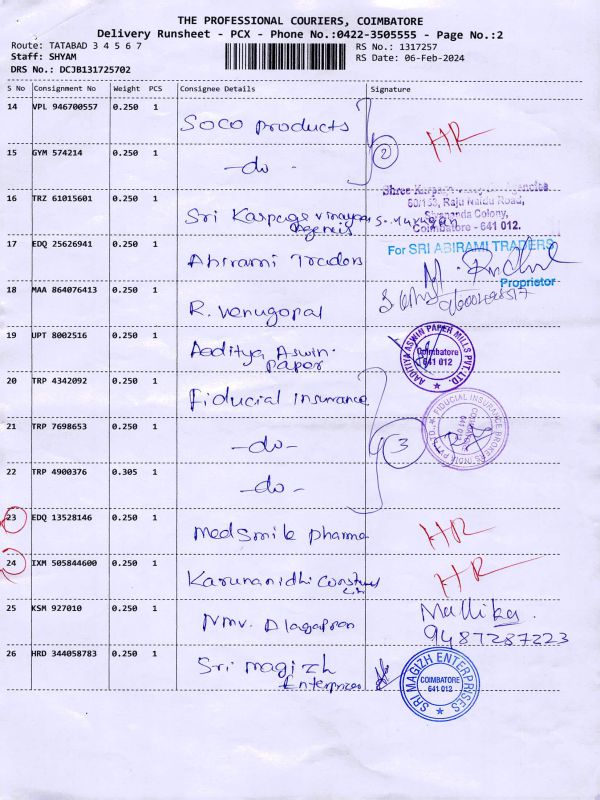 THE PROFESSIONAL COURIERS, COIMBATORE
Delivery Runsheet - PCX - Phone No.:0422-3505555 - Page No.:2
Route: TATABAD 3 4 5 6 7
RS No.: 1317257
Staff: SHYAM
RS Date: 06-Feb-2024
DRS No.: DCJB131725702
S No Consignment No Weight PCS Consignee Details Signature
14 VPL 946700557 0.250 1 Soco products HR
2
15 GYM 574214 0.250 1 -do-
16 TRZ 61015601 0.250 1 Sri Karpaga Vinayaga S. Murugan
Agencis
60/153, Raju Naidu Road,
Sivananda Colony,
Coimbatore - 641 012.
17 EDQ 25626941 0.250 1 Abirami Traders
For SRI ABIRAMI TRADERS
Proprietor
18 MAA 864076413 0.250 1 R. Venugopal
19 UPT 8002516 0.250 1 Aaditya Aswin
paper
AADITYA ASWIN PAPER MILLS PVT. LTD.
Coimbatore
641 012
20 TRP 4342092 0.250 1 Fiducial Insurance
FIDUCIAL INSURANCE BROKERS INDIA PVT. LTD.
21 TRP 7698653 0.250 1 -do- 3
22 TRP 4900376 0.305 1 -do-
23 EDQ 13528146 0.250 1 Medsmile pharma HR
24 IXM 505844600 0.250 1 Karunanidhi HR
25 KSM 927010 0.250 1 Nmv. Mallika.
9487287223
26 HRD 344058783 0.250 1 Sri Magizh
Enterprises
SRI MAGIZH ENTERPRISES
COIMBATORE
641 012